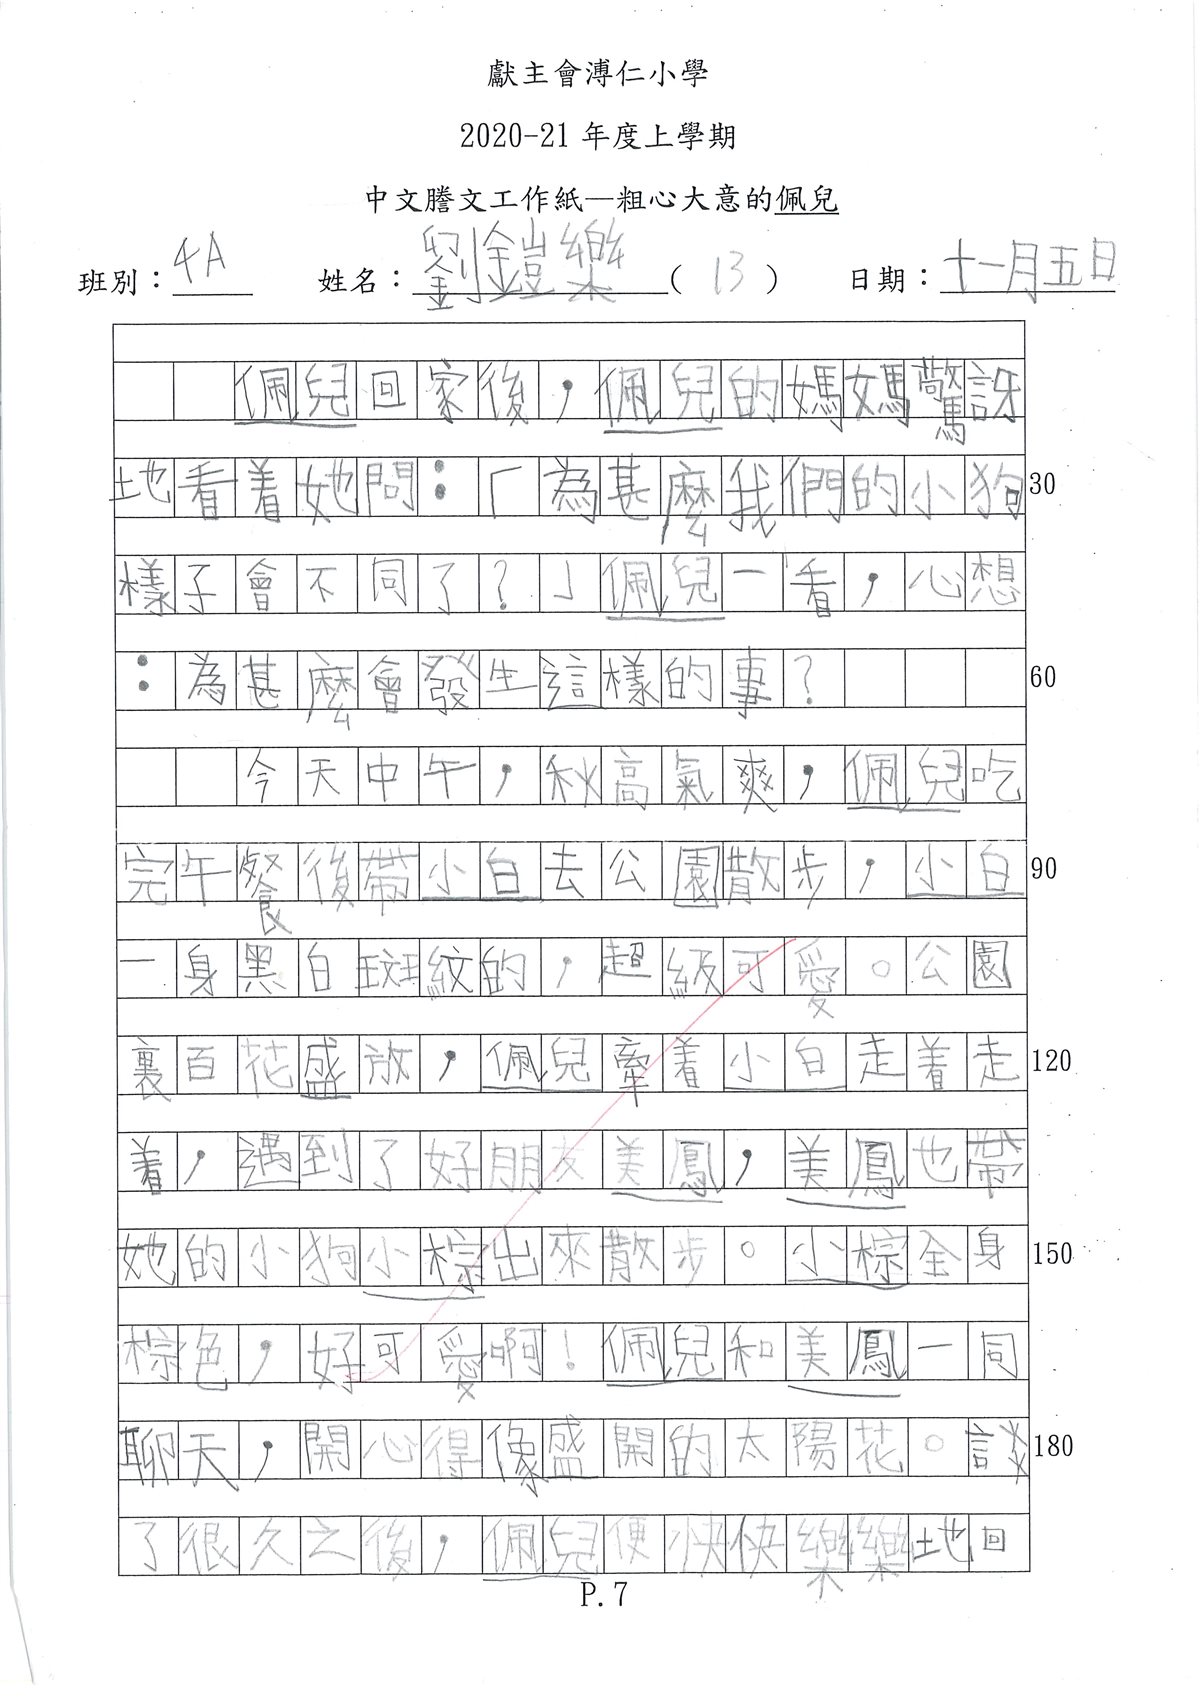 獻主會溥仁小學
2020-21 年度上學期
中文謄文工作紙—粗心大意的佩兒
班別：4A 姓名：劉鎧樂 ( 13 ) 日期：十一月五日
佩兒回家後，佩兒的媽媽驚訝
地看着她問：「為甚麼我們的小狗 30
樣子會不同了？」佩兒一看，心想
：為甚麼會發生這樣的事？ 60
今天中午，秋高氣爽，佩兒吃
完午餐後帶小白去公園散步，小白 90
一身黑白斑紋的，超級可愛。公園
裏百花盛放，佩兒牽着小白走着走 120
着，遇到了好朋友美鳳，美鳳也帶
她的小狗小棕出來散步。小棕全身 150
棕色，好可愛啊！佩兒和美鳳一同
聊天，開心得像盛開的太陽花。談 180
了很久之後，佩兒便快快樂樂地回
P.7